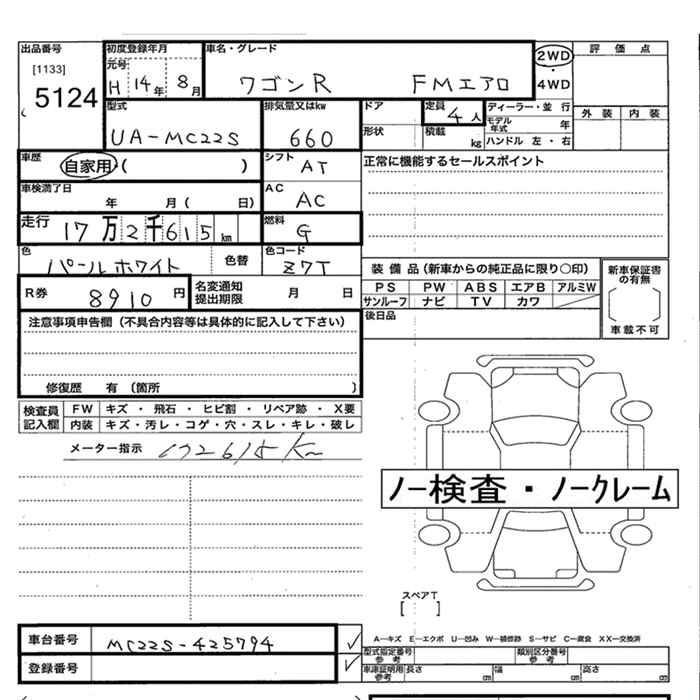 出品番号
[1133]
5124
初度登録年月
元号
H 14年 8月
車名・グレード
ワゴンR FMエアロ
2WD
・
4WD
評価点
外装 内装
型式
UA-MC22S
排気量又はkw
660
ドア
形状
定員 4人
積載 kg
ディーラー・並行
モデル年式 年
ハンドル 左・右
車歴
自家用 ( )
シフト
AT
正常に機能するセールスポイント
車検満了日
年 月( 日)
AC
AC
走行
17万2千615km
燃料
G
色
パールホワイト
色替
色コード
Z7T
装備品(新車からの純正品に限り○印)
PS PW ABS エアB アルミW
サンルーフ ナビ TV カワ
新車保証書の有無
車載不可
R券 8910円
名変通知提出期限 月 日
後日品
注意事項申告欄(不具合内容等は具体的に記入して下さい)
修復歴 有 (箇所 )
検査員記入欄
FW キズ・飛石・ヒビ割・リペア跡・X要
内装 キズ・汚レ・コゲ・穴・スレ・キレ・破レ
メーター指示 172615Km
ノー検査・ノークレーム
スペアT
[ ]
車台番号 MC22S-425794 ✓
登録番号 ✓
A―キズ E―エクボ U―凹み W―補修跡 S―サビ C―腐食 XX―交換済
型式指定番号参考
類別区分番号参考
車庫証明用参考 長さ cm 幅 cm 高さ cm